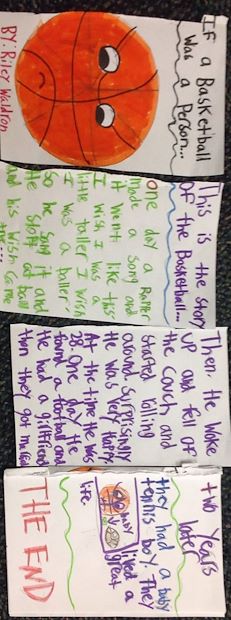 If a Basketball
Was a Person...
BY: Riley Waldron
This is the story
of the Basketball...
One day a Rapper
made a song and
it went like this
I wish I was a
little taller I wish
I was a baller"
So he sang it and
the spott of ball
and his wish came
Then He woke
up and fell of
the couch and
started rolling
around. Surprisingly
He was very happy.
At the time he was
28. One day the
found a football and
He had a girlfriend
then they got married
two years
later
they had a baby
tennis boy. They
lived a
great
life.
THE END